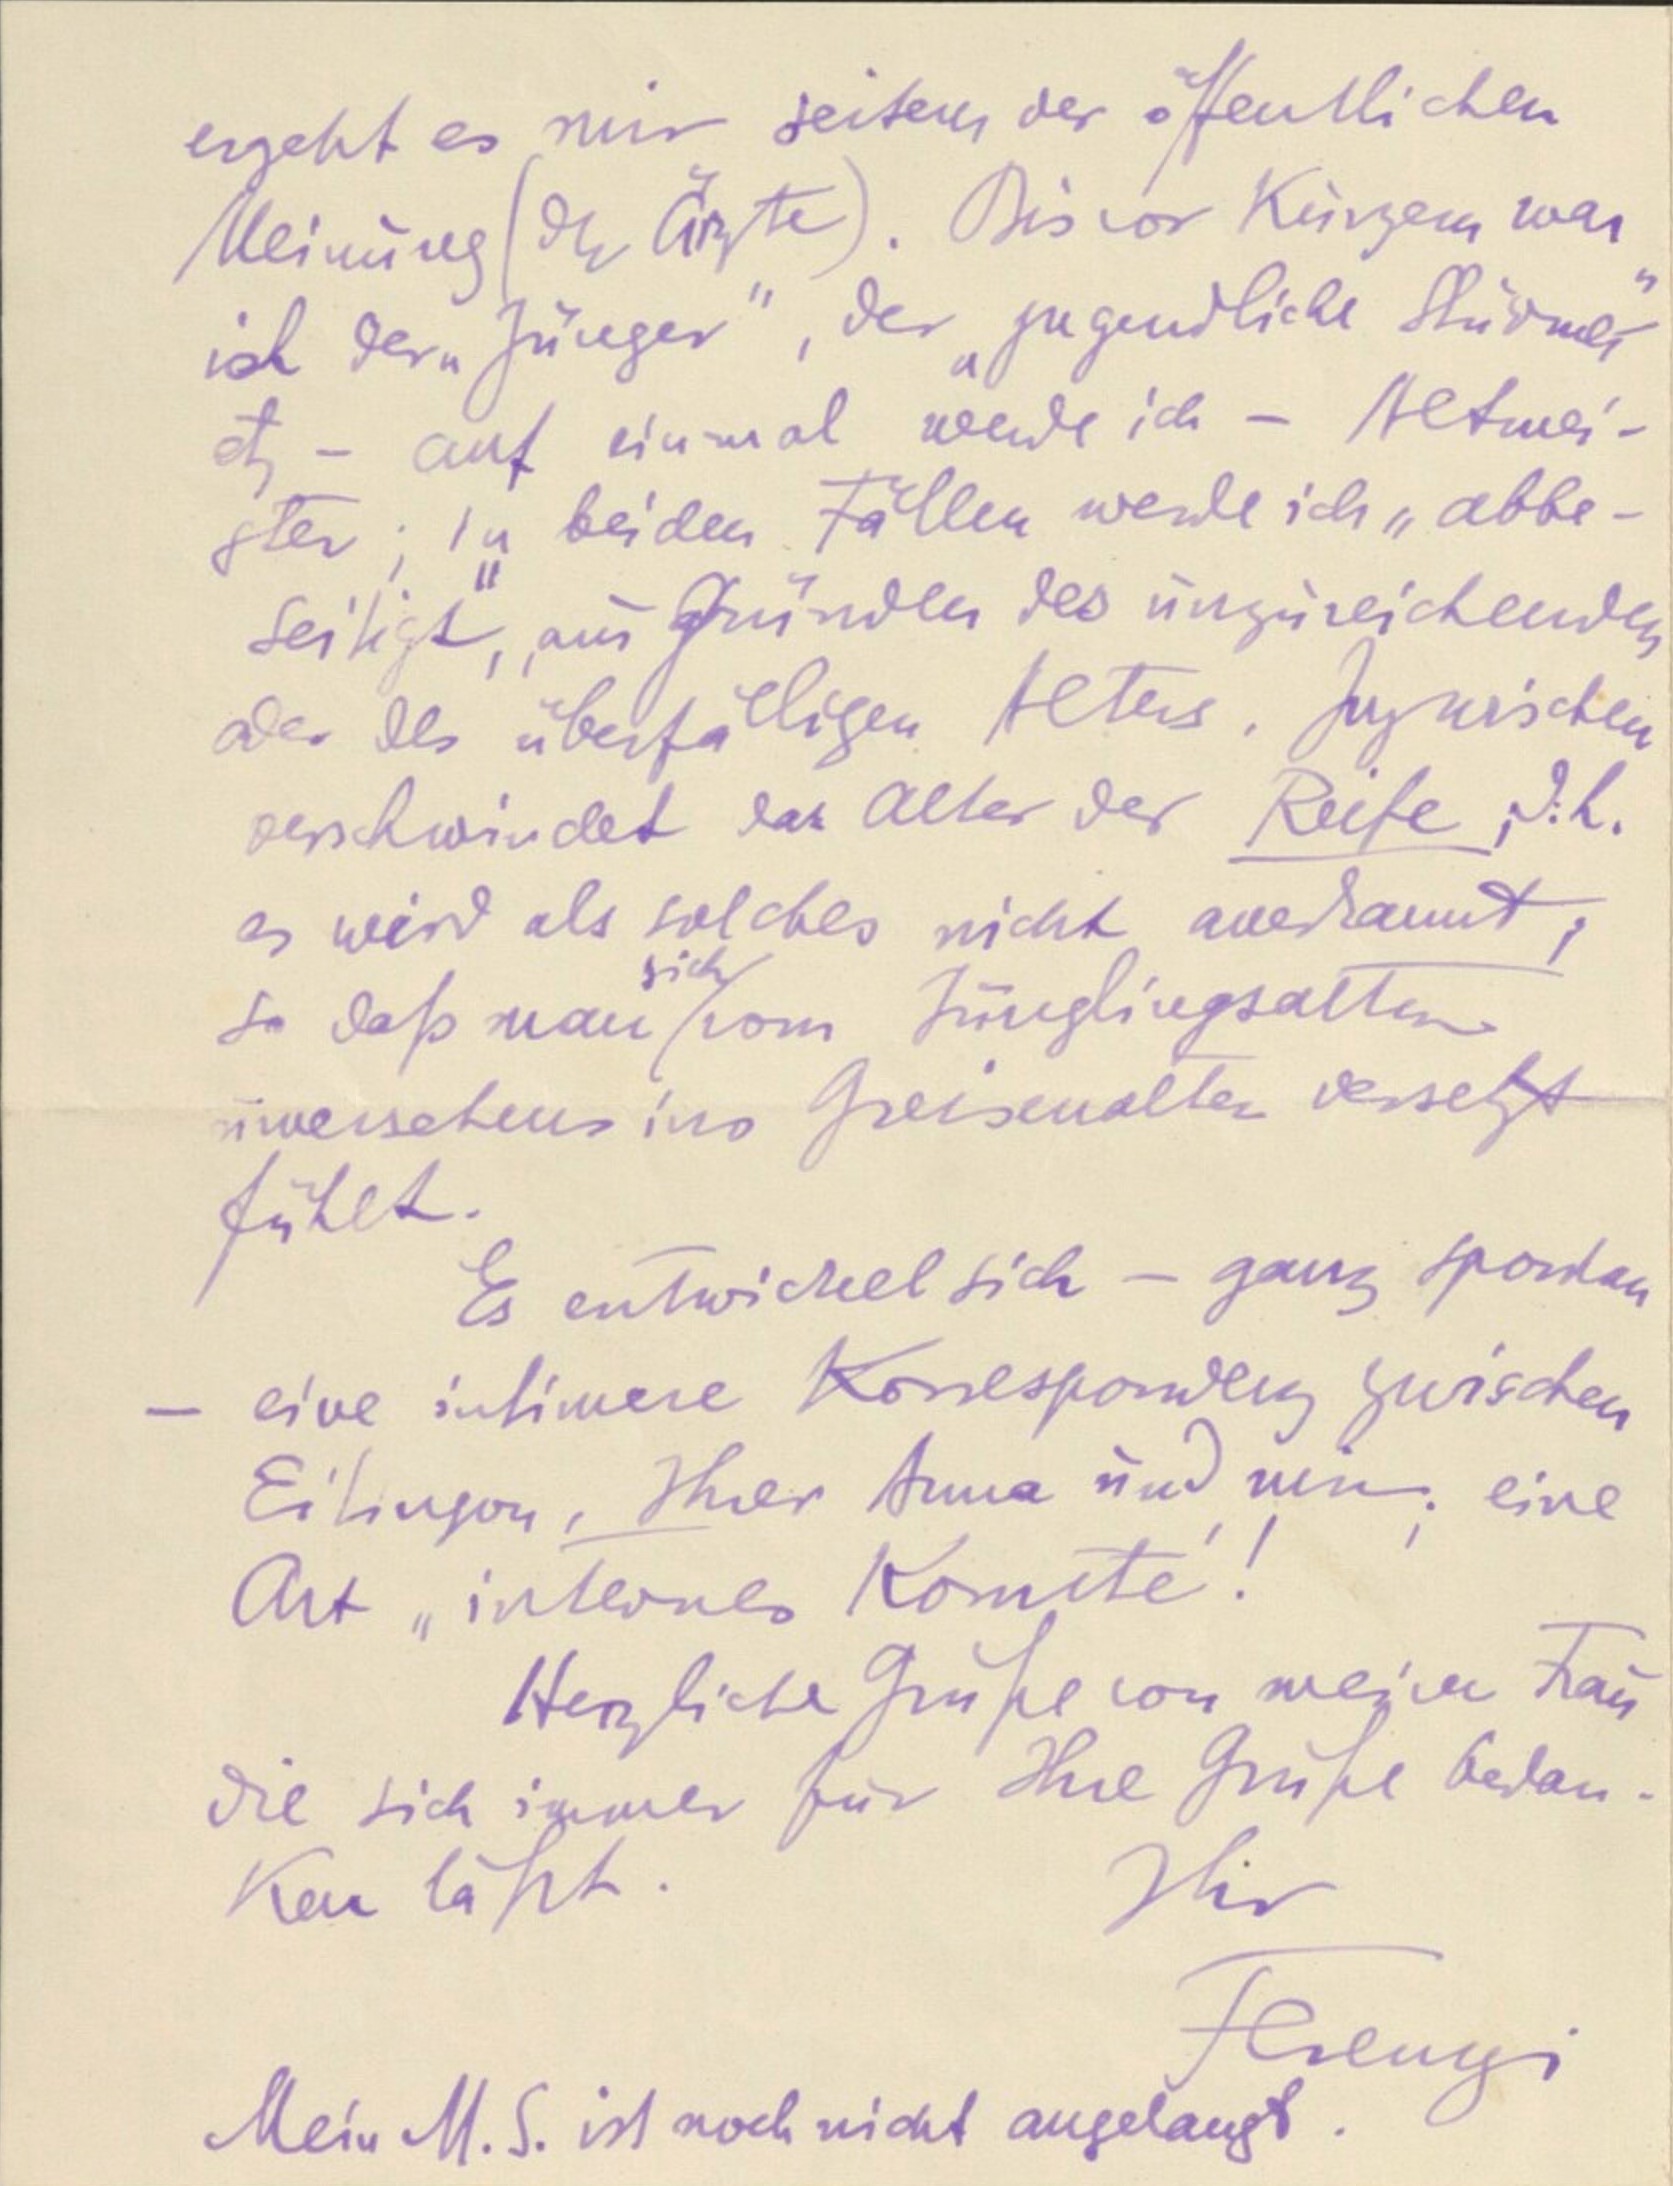 ergeht es mir seitens der öffentlichen
Meinung (der Ärzte). Bis vor Kurzem war
ich der „Jünger", der „jugendliche Stürmer"
etz – auf einmal werde ich – Altmei-
ster; in beiden Fällen werde ich „abbe-
seitigt", aus Gründen des unzureichenden
oder des überfälligen Alters. Inzwischen
verschwindet das Alter der Reife, d.h.
es wird als solches nicht anerkannt;
so daß man sich vom Jünglingsalter
unversehens ins Greisenalter versetzt
fühlt.
Es entwickel sich – ganz spontan
– eine intimere Korrespondenz zwischen
Eitingon, Ihrer Anna und mir; eine
Art „internes Komite"!
Herzliche Grüße von meiner Frau
die sich immer für Ihre Grüße bedan-
ken läßt.
Ihr
Ferenczi
Mein M.S. ist noch nicht angelangt.